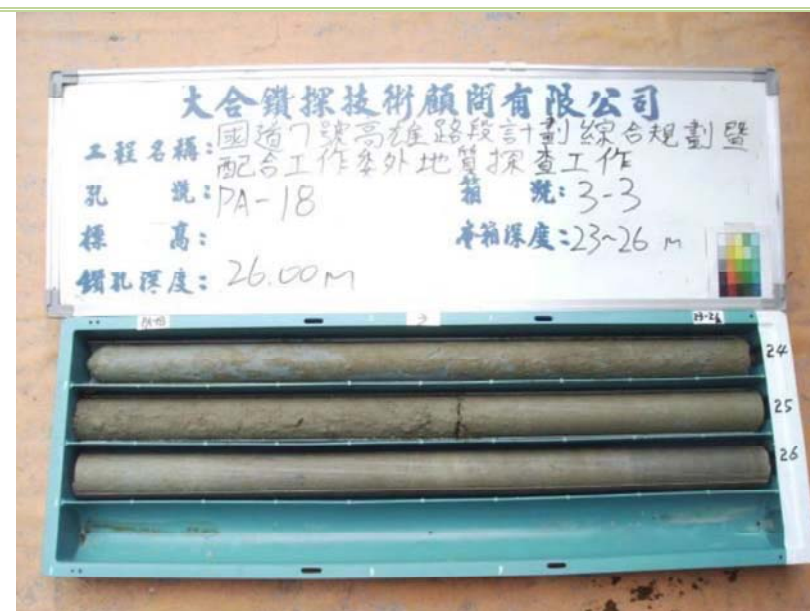 大合鑽探技術顧問有限公司
工程名稱:國道7號高雄路段計劃綜合規劃暨
配合工作委外地質探查工作
孔號:PA-18 箱號:3-3
標高: 本箱深度:23~26 m
鑽孔深度:26.00m
23-26
24
25
26